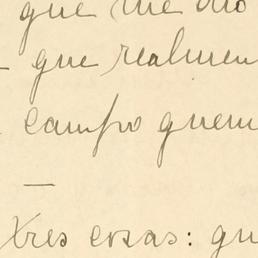 que me dió
que realmen
campo quem
—
Tres cosas: qu